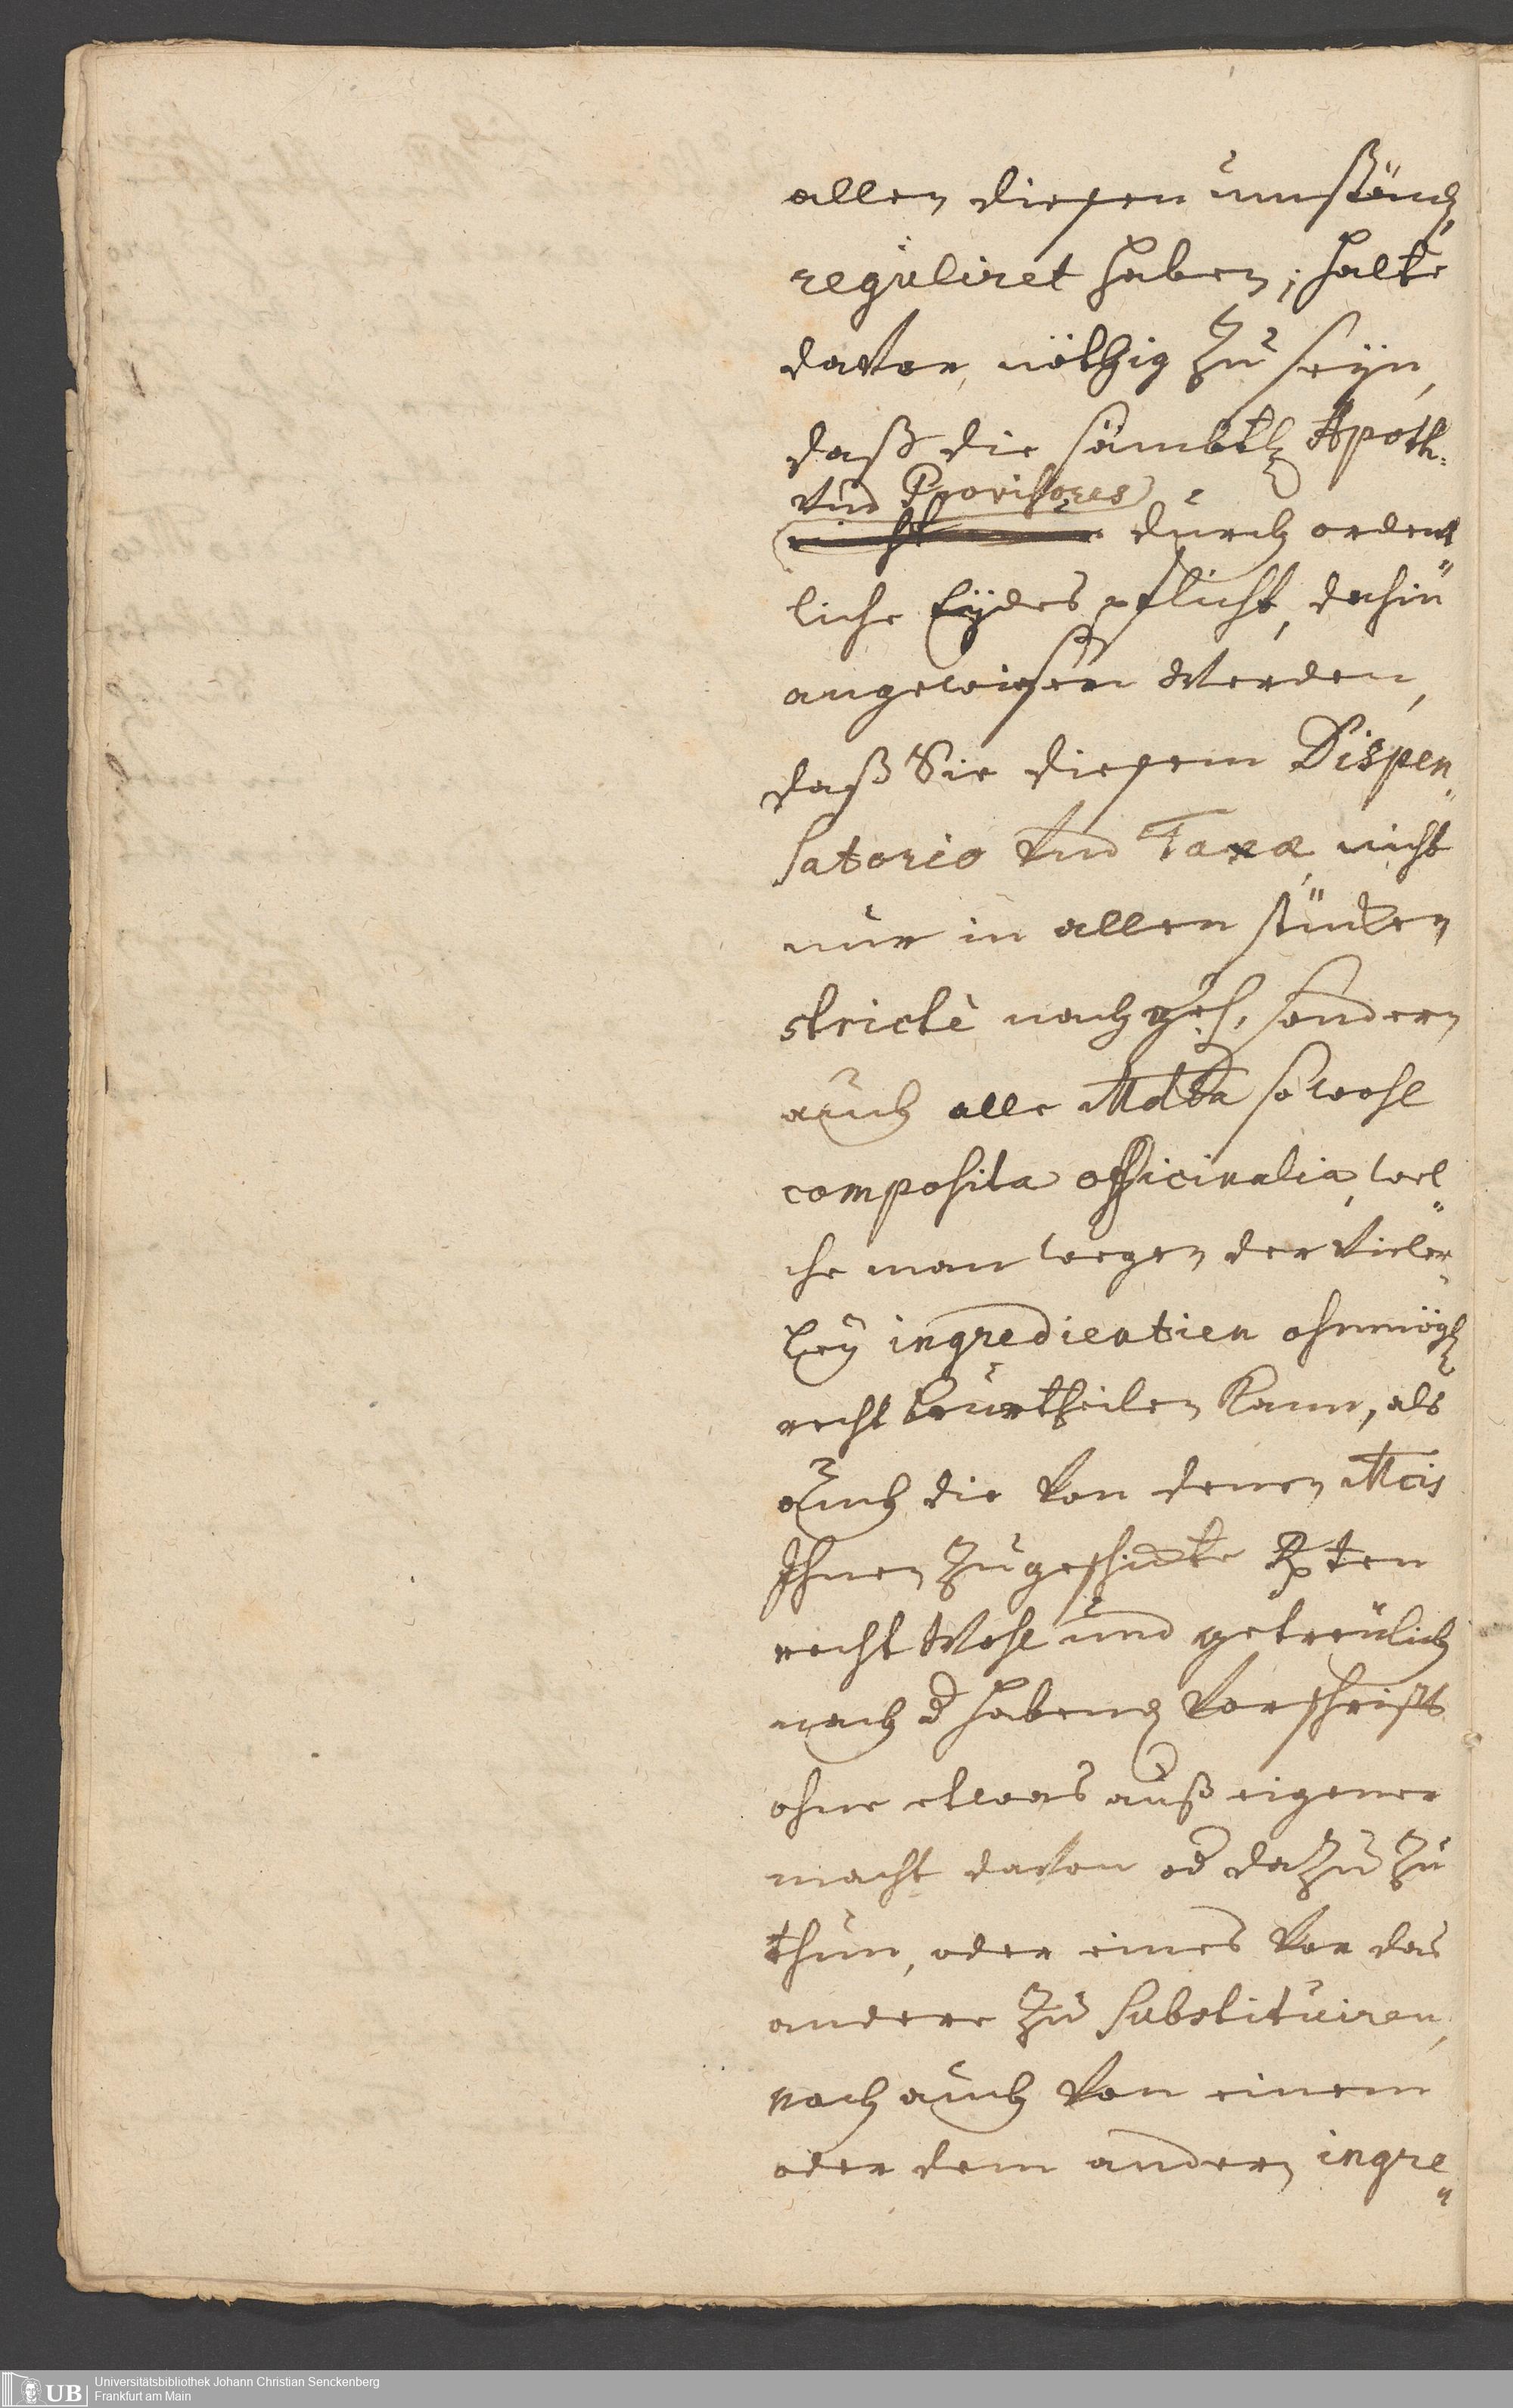 allen diesen umständ
reguliret haben; halte
davor, nöthig zu seÿn,
daß die sämbtl Apoth:
vnd Provisores
durch ordent
liche Eÿdes pflicht, dahin
angewisen werden,
daß Sie diesem Dispen
satorio vnd Taxæ, nicht
nur in allen stücken
strictè nachgeh, sondern
auch alle Mdta so wohl
composita officinalia, wel
che man wegen der vieler
leÿ ingredientien ohnmögl
recht beurtheilen kann, als
auch die von denen Mcis
Ihnen zugeschickte Rpten
recht wohl und getreulich
nach d habend vorschrifft
ohne etwas auß eigener
macht davon od dazu zu
thun, oder eines vor das
andere zu substituiren,
noch auch von einem
oder dem andern ingre
UB Universitätsbibliothek Johann Christian Senckenberg
Frankfurt am Main